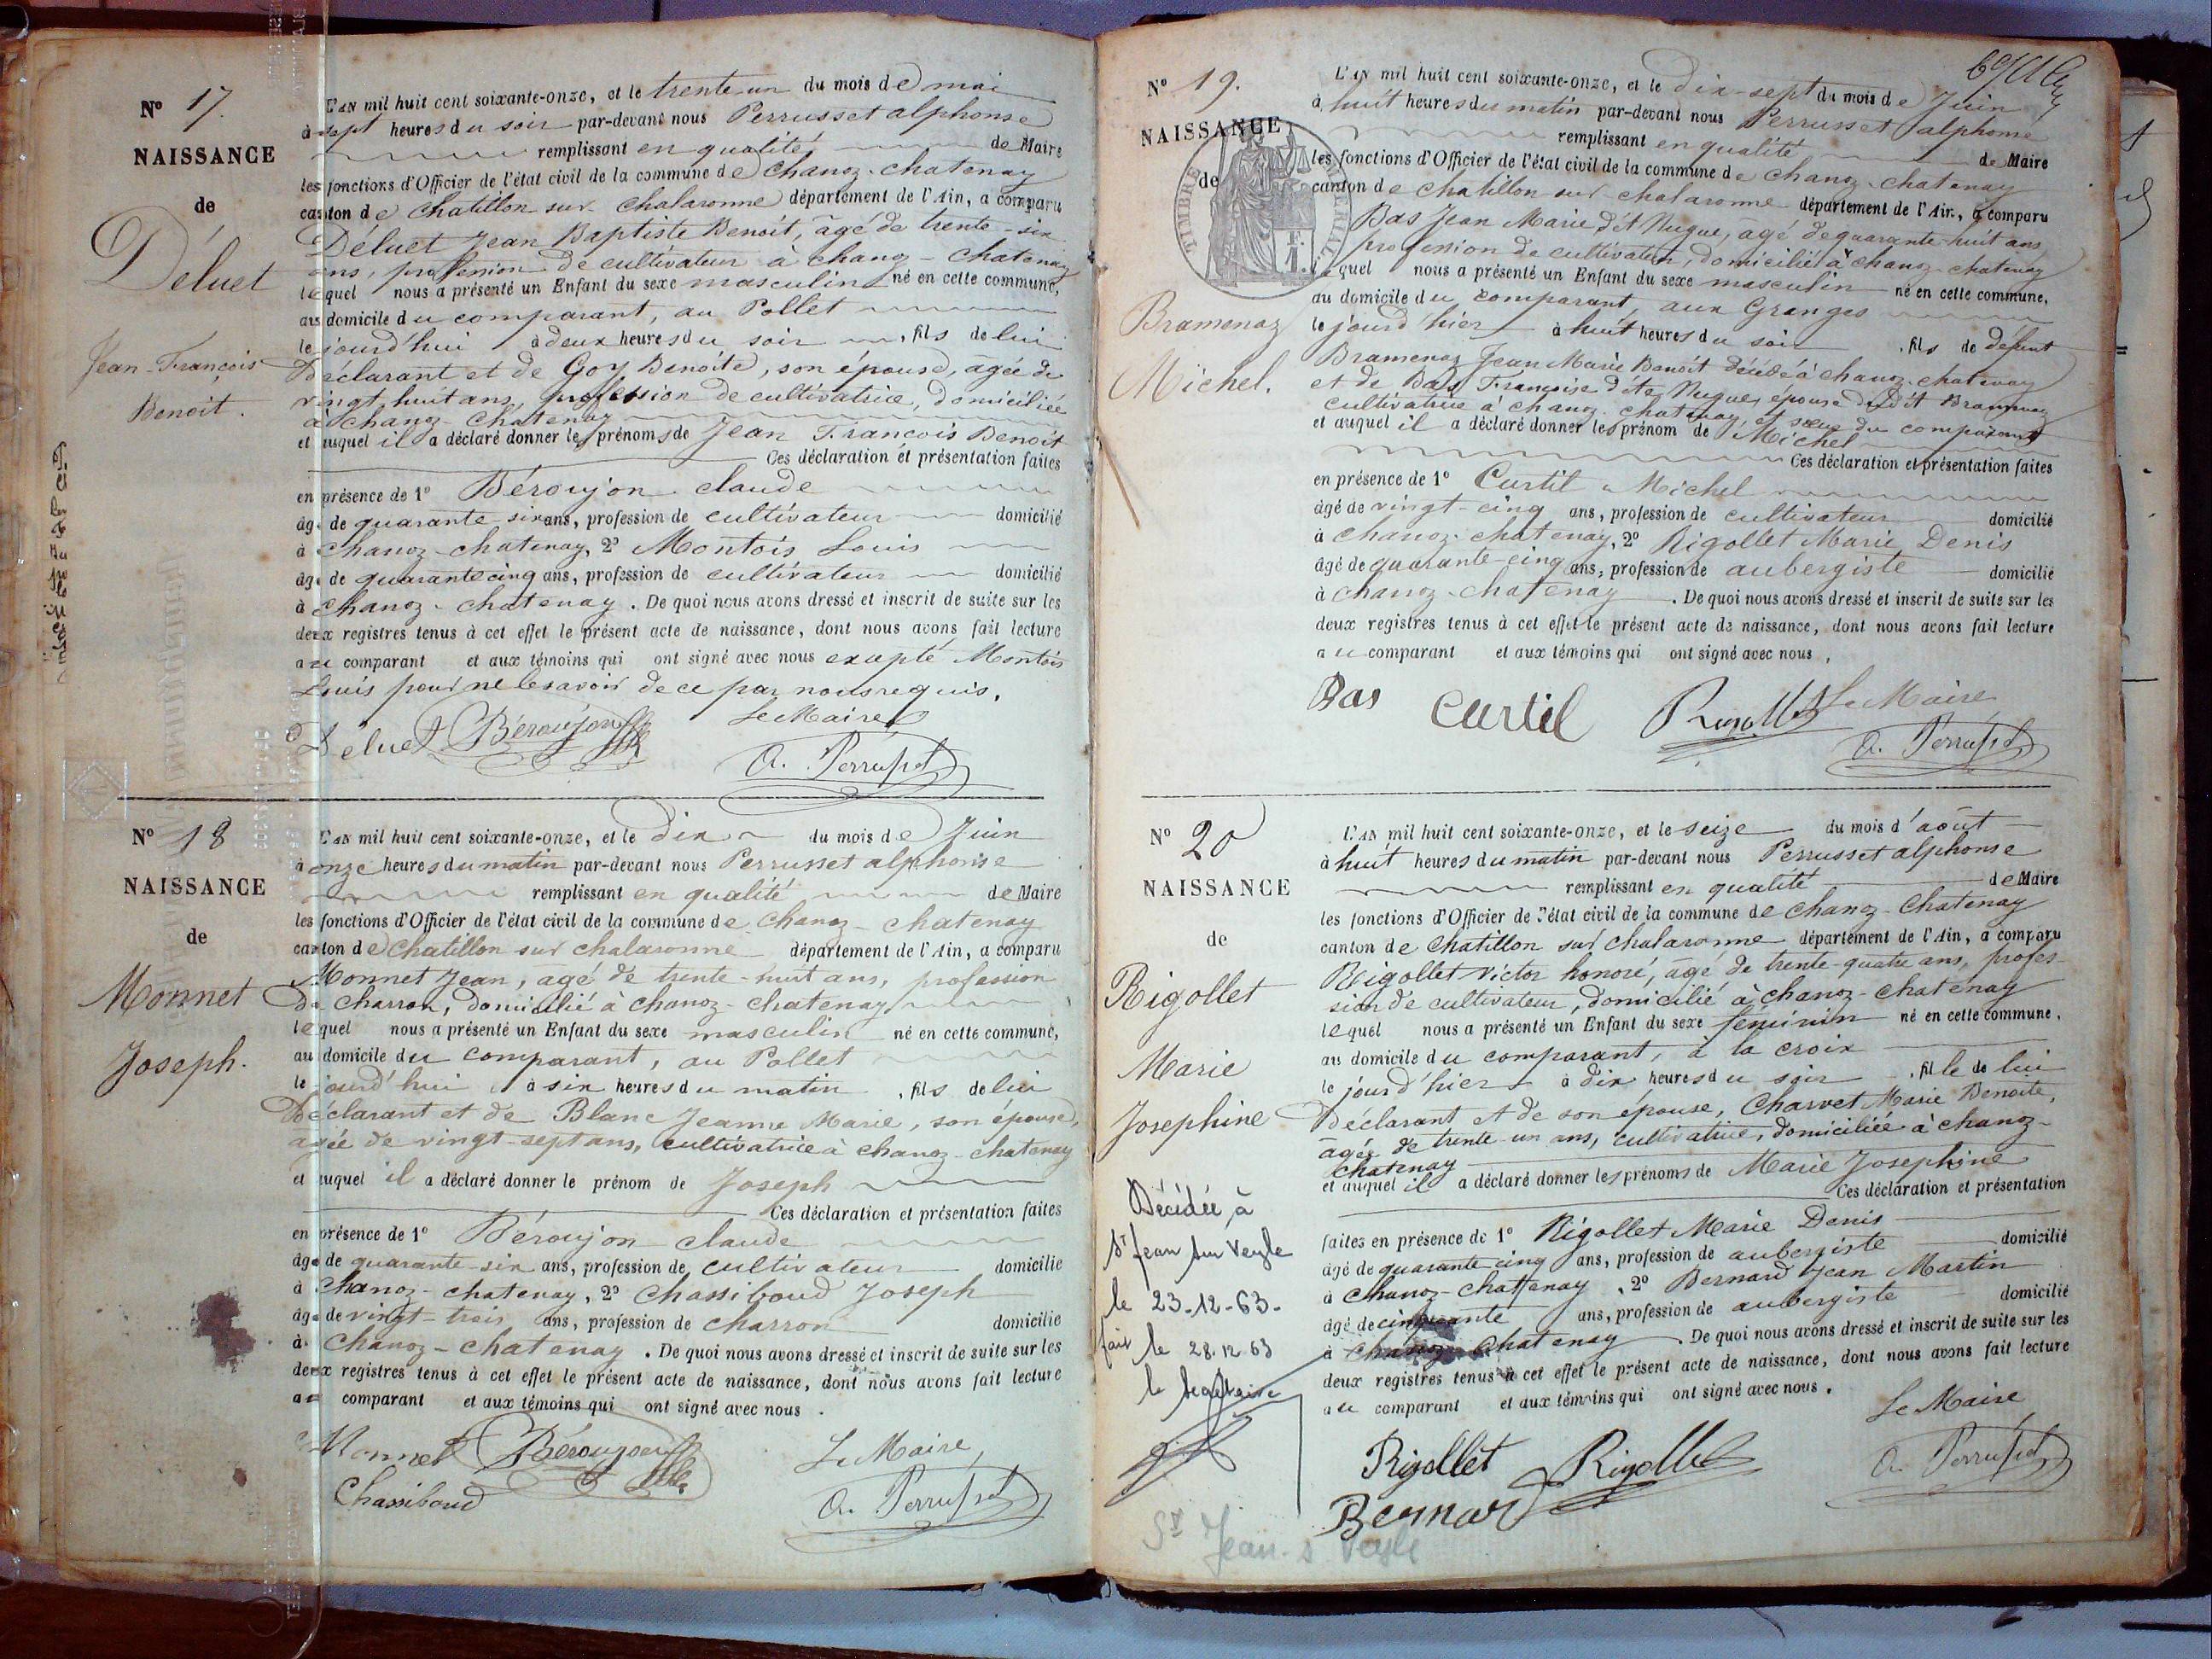 N° 17.
NAISSANCE
de
Déluet
Jean-François
Benoit.
L'AN mil huit cent soixante-onze, et le trente un du mois de mai
à sept heures du soir par-devant nous Perrusset alphonse
remplissant en qualité de Maire
les fonctions d'Officier de l'état civil de la commune de chanoz-chatenay
canton de chatillon sur chalaronne département de l'Ain, a comparu
Déluet Jean Baptiste Benoit, âgé de trente-six
ans, profession de cultivateur à chanoz-chatenay
lequel nous a présenté un Enfant du sexe masculin né en cette commune,
au domicile du comparant, au Pollet
le jourd'hui à deux heures du soir , fils de lui
Déclarant et de Goy Benoite, son épouse, âgée de
vingt huit ans, profession de cultivatrice, domiciliée
à chanoz-chatenay
et auquel il a déclaré donner les prénoms de Jean François Benoit
Ces déclaration et présentation faites
en présence de 1° Béroujon claude
âgé de quarante six ans, profession de cultivateur domicilié
à chanoz-chatenay, 2° Montois Louis
âgé de quarante cinq ans, profession de cultivateur domicilié
à chanoz-chatenay. De quoi nous avons dressé et inscrit de suite sur les
deux registres tenus à cet effet le présent acte de naissance, dont nous avons fait lecture
au comparant et aux témoins qui ont signé avec nous excepté Montois
Louis pour ne le savoir de ce par nous requis.
Déluet Béroujon Le Maire
A. Perrusset
N° 18
NAISSANCE
de
Monnet
Joseph.
L'AN mil huit cent soixante-onze, et le dix du mois de Juin
à onze heures du matin par-devant nous Perrusset alphonse
remplissant en qualité de Maire
les fonctions d'Officier de l'état civil de la commune de chanoz-chatenay
canton de chatillon sur chalaronne département de l'Ain, a comparu
Monnet Jean, agé de trente-huit ans, profession
de charron, domicilié à chanoz-chatenay
lequel nous a présenté un Enfant du sexe masculin né en cette commune,
au domicile du comparant, au Pollet
le jourd'hui à six heures du matin , fils de lui
Déclarant et de Blanc Jeanne Marie, son épouse,
agée de vingt-sept ans, cultivatrice à chanoz-chatenay
et auquel il a déclaré donner le prénom de Joseph
Ces déclaration et présentation faites
en présence de 1° Béroujon claude
âgé de quarante-six ans, profession de cultivateur domicilié
à chanoz-chatenay, 2° Chassiboud Joseph
âgé de vingt-trois ans, profession de charron domicilié
à chanoz-chatenay. De quoi nous avons dressé et inscrit de suite sur les
deux registres tenus à cet effet le présent acte de naissance, dont nous avons fait lecture
au comparant et aux témoins qui ont signé avec nous.
Monnet Béroujon Le Maire,
Chassiboud A. Perrusset
N° 19.
NAISSANCE
de
TIMBRE IMPERIAL
Bramenaz
Michel.
L'AN mil huit cent soixante-onze, et le dix-sept du mois de Juin
à huit heures du matin par-devant nous Perrusset alphonse
remplissant en qualité de Maire
les fonctions d'Officier de l'état civil de la commune de chanoz-chatenay
canton de chatillon sur chalaronne département de l'Ain, a comparu
Bas Jean Marie dit Nugue, agé de quarante-huit ans
profession de cultivateur, domicilié à chanoz-chatenay
lequel nous a présenté un Enfant du sexe masculin né en cette commune,
au domicile du comparant, aux Granges
le jourd'hier à huit heures du soir , fils de défunt
Bramenaz Jean Marie Benoit décédé à chanoz-chatenay
et de Bas Françoise dite Nugue, épouse dudit Bramenaz
cultivatrice à chanoz-chatenay et soeur du comparant
et auquel il a déclaré donner le prénom de Michel
Ces déclaration et présentation faites
en présence de 1° Curtil Michel
âgé de vingt-cinq ans, profession de cultivateur domicilié
à chanoz-chatenay, 2° Rigollet Marie Denis
âgé de quarante-cinq ans, profession de aubergiste domicilié
à chanoz-chatenay. De quoi nous avons dressé et inscrit de suite sur les
deux registres tenus à cet effet le présent acte de naissance, dont nous avons fait lecture
au comparant et aux témoins qui ont signé avec nous,
Bas Curtil Rigollet Le Maire
A. Perrusset
N° 20
NAISSANCE
de
Rigollet
Marie
Josephine
Décédée à
St Jean sur Veyle
le 23-12-63-
fait le 28.12.63
le secrétaire
St Jean-s Veyle
L'AN mil huit cent soixante-onze, et le seize du mois d'août
à huit heures du matin par-devant nous Perrusset alphonse
remplissant en qualité de Maire
les fonctions d'Officier de l'état civil de la commune de chanoz-chatenay
canton de chatillon sur chalaronne département de l'Ain, a comparu
Rigollet Victor honoré, âgé de trente-quatre ans, profes-
sion de cultivateur, domicilié à chanoz-chatenay
lequel nous a présenté un Enfant du sexe féminin né en cette commune,
au domicile du comparant, à la croix
le jourd'hier à dix heures du soir , fille de lui
Déclarant et de son épouse, Charvet Marie Benoite,
âgée de trente-un ans, cultivatrice, domiciliée à chanoz-
chatenay
et auquel il a déclaré donner les prénoms de Marie Josephine
Ces déclaration et présentation
faites en présence de 1° Rigollet Marie Denis
âgé de quarante cinq ans, profession de aubergiste domicilié
à chanoz-chattenay, 2° Bernard Jean Martin
âgé de cinquante ans, profession de aubergiste domicilié
à chanoz chatenay. De quoi nous avons dressé et inscrit de suite sur les
deux registres tenus à cet effet le présent acte de naissance, dont nous avons fait lecture
au comparant et aux témoins qui ont signé avec nous.
Le Maire
Rigollet Rigollet A. Perrusset
Bernard